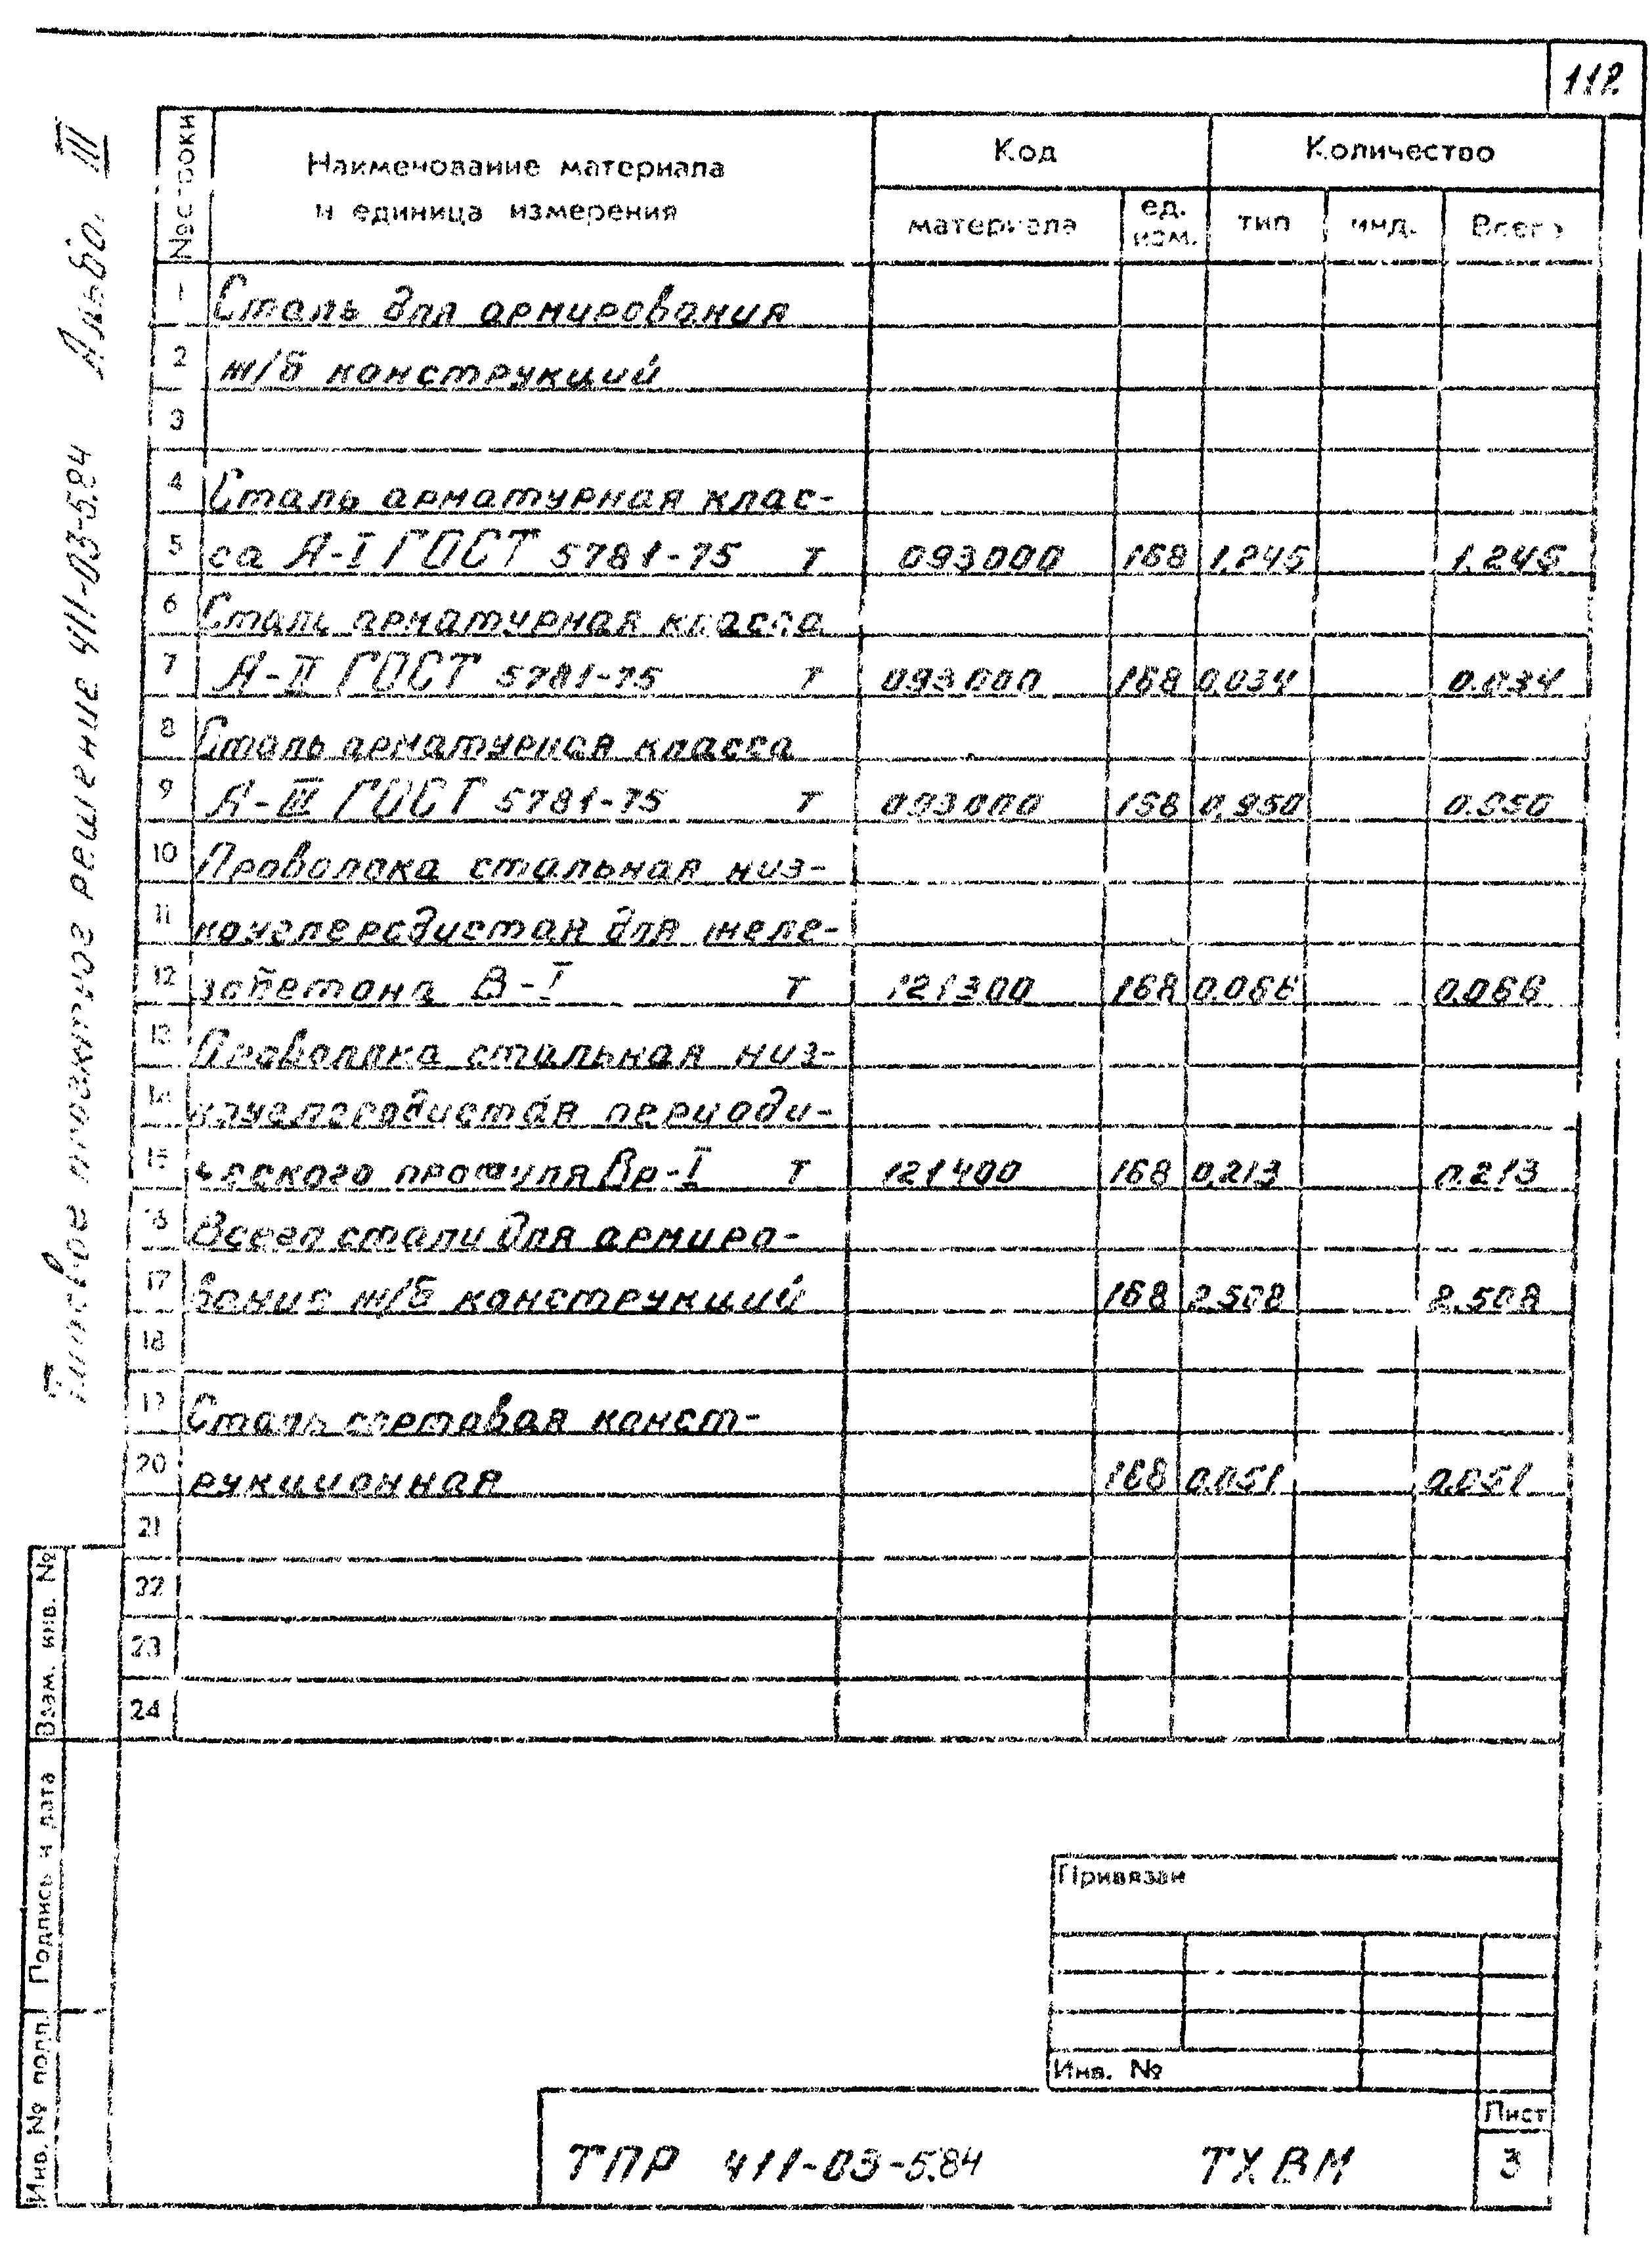 112
Альбо. III
Типовое проектное решение 411-03-5.84
№ строки
Наименование материала
и единица измерения
Код
Количество
материала
ед. изм.
тип
инд.
Всего
1 Сталь для армирования
2 ж/б конструкций
3
4 Сталь арматурная клас-
5 са А-I ГОСТ 5781-75 т 093000 168 1,245 1.245
6 Сталь арматурная класса
7 А-II ГОСТ 5781-75 т 093000 168 0.034 0.034
8 Сталь арматурная класса
9 А-III ГОСТ 5781-75 т 093000 168 0,950 0.950
10 Проволока стальная низ-
11 коуглеродистая для желе-
12 зобетона В-I т 121300 168 0.066 0.066
13 Проволока стальная низ-
14 коуглеродистая периоди-
15 ческого профиля Вр-I т 121400 168 0.213 0.213
16 Всего стали для армиро-
17 вания ж/б конструкций 168 2.508 2.508
18
19 Сталь сортовая конст-
20 рукционная 168 0.051 0.051
21
22
23
24
Взам. инв. №
Подпись и дата
Инв. № подл.
Привязан
Инв. №
ТПР 411-03-5.84 ТХ ВМ
Лист
3